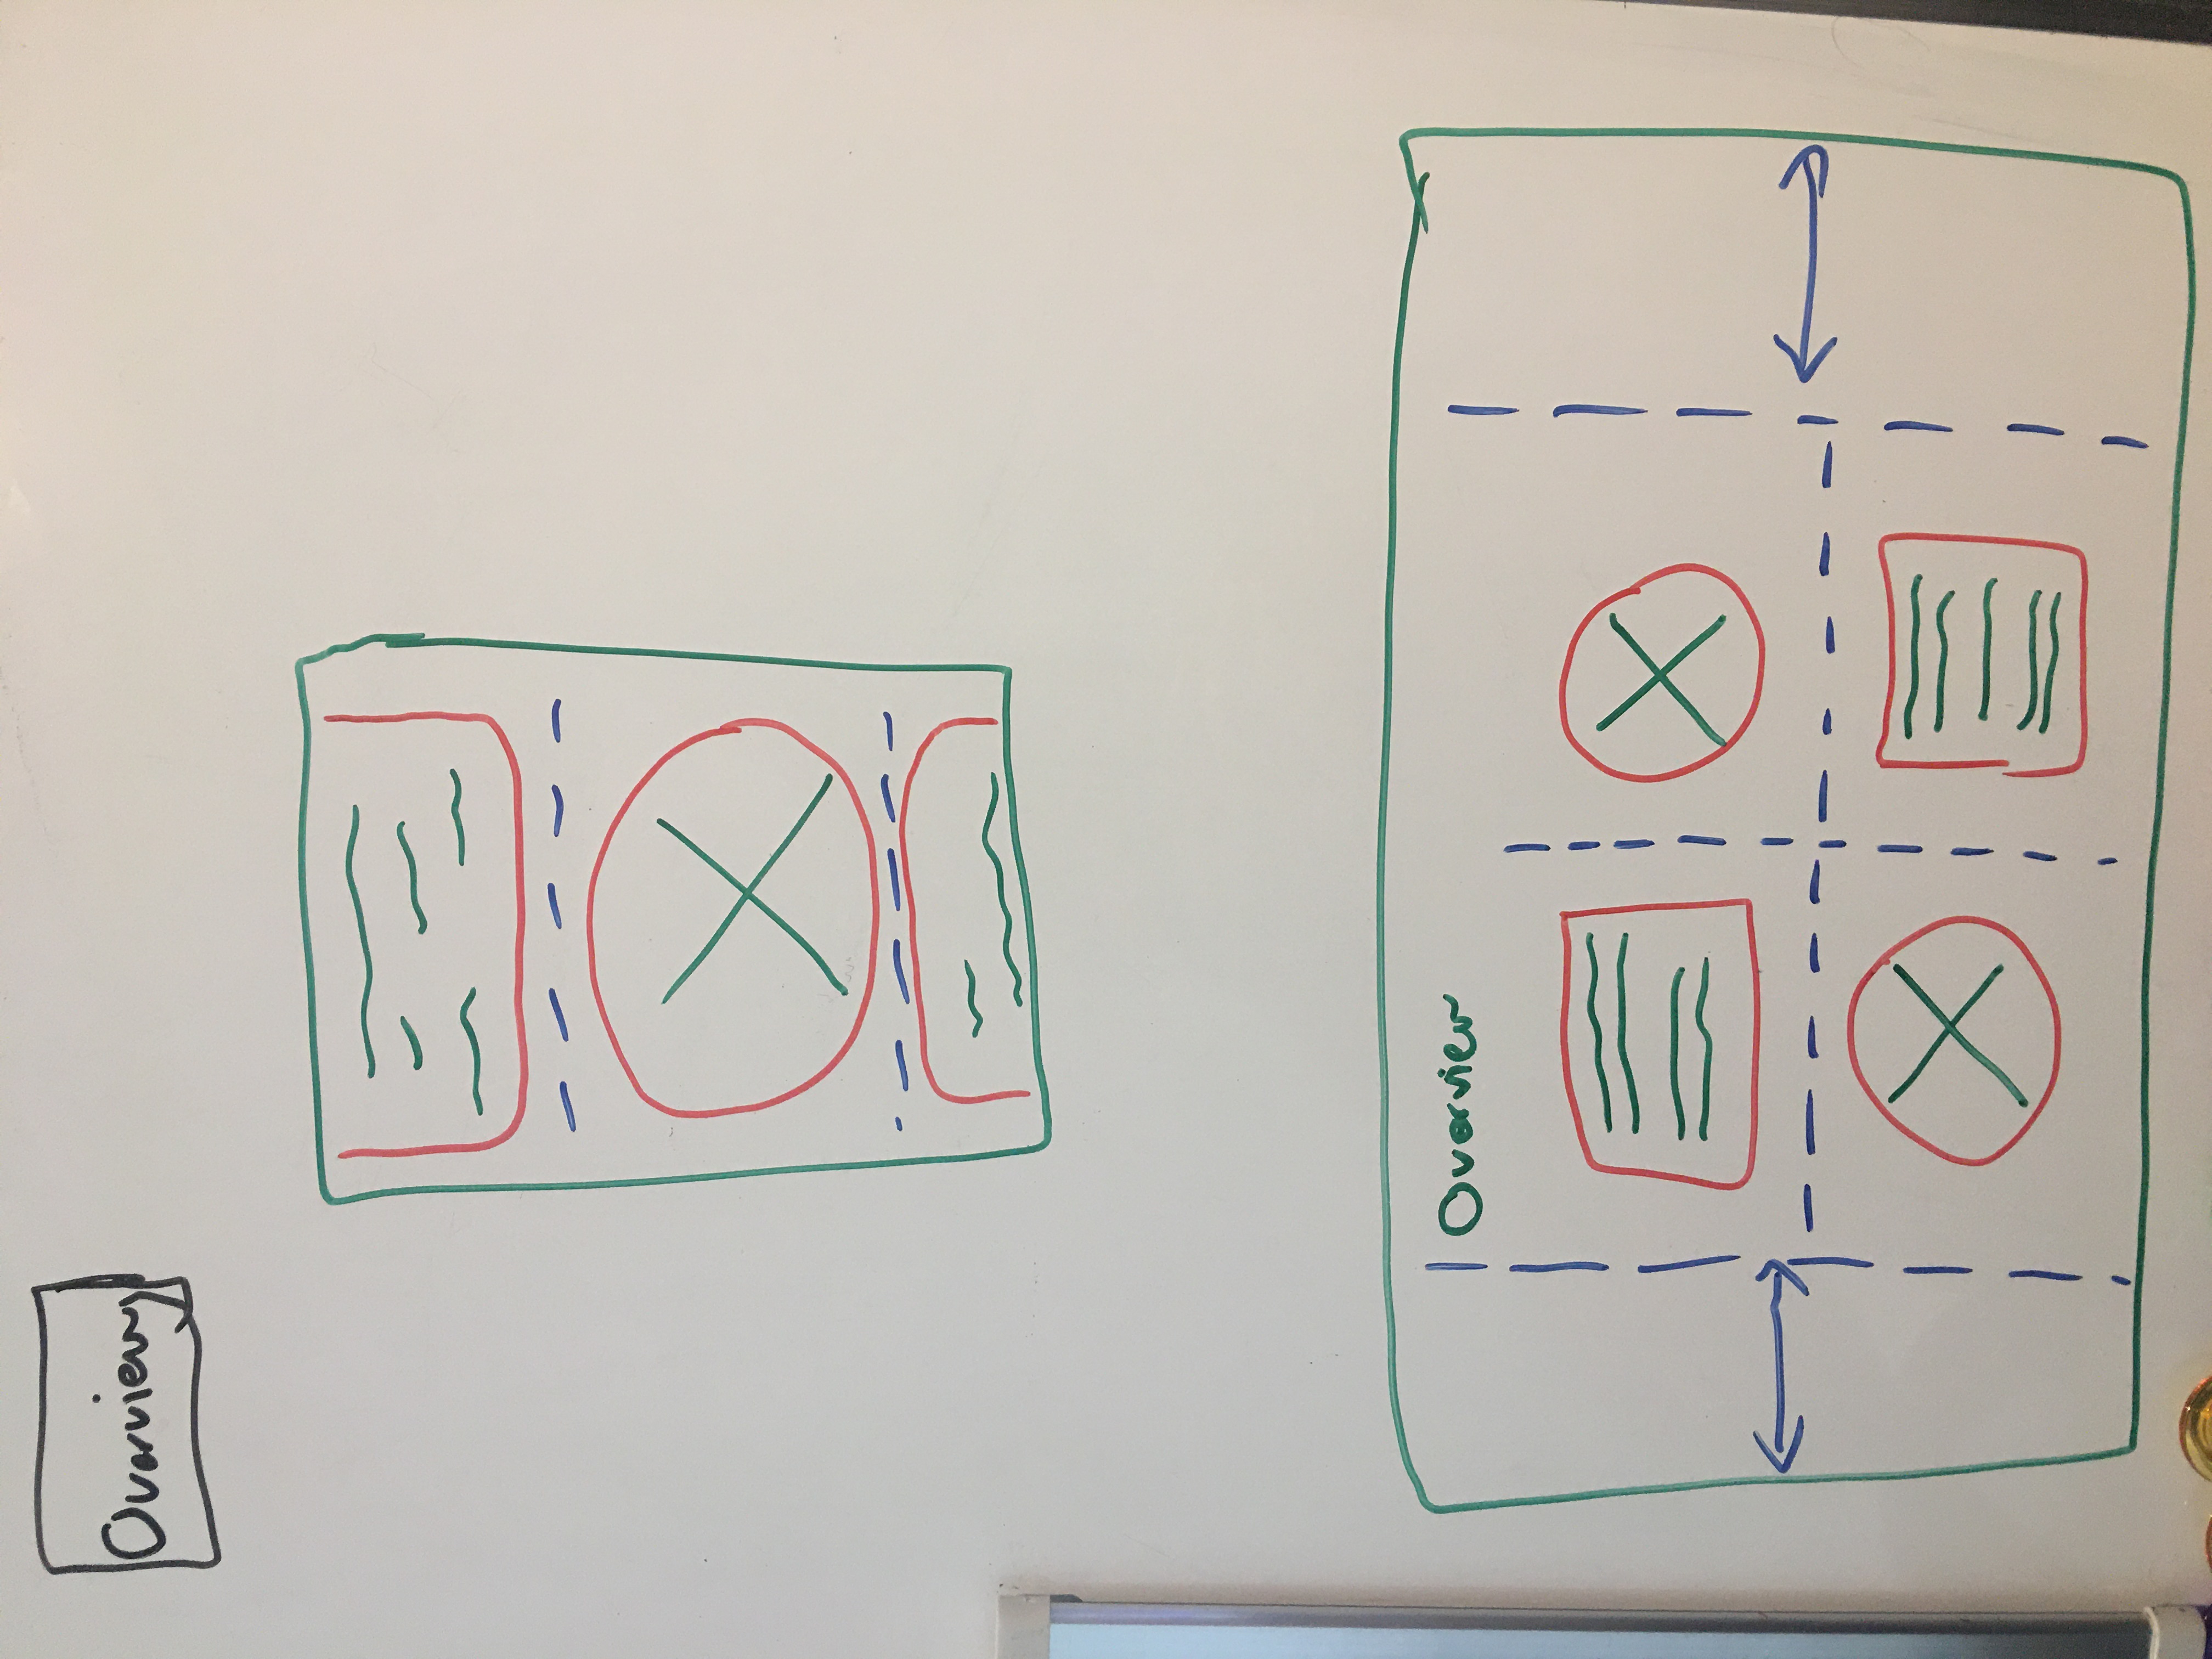 Overview
Overview